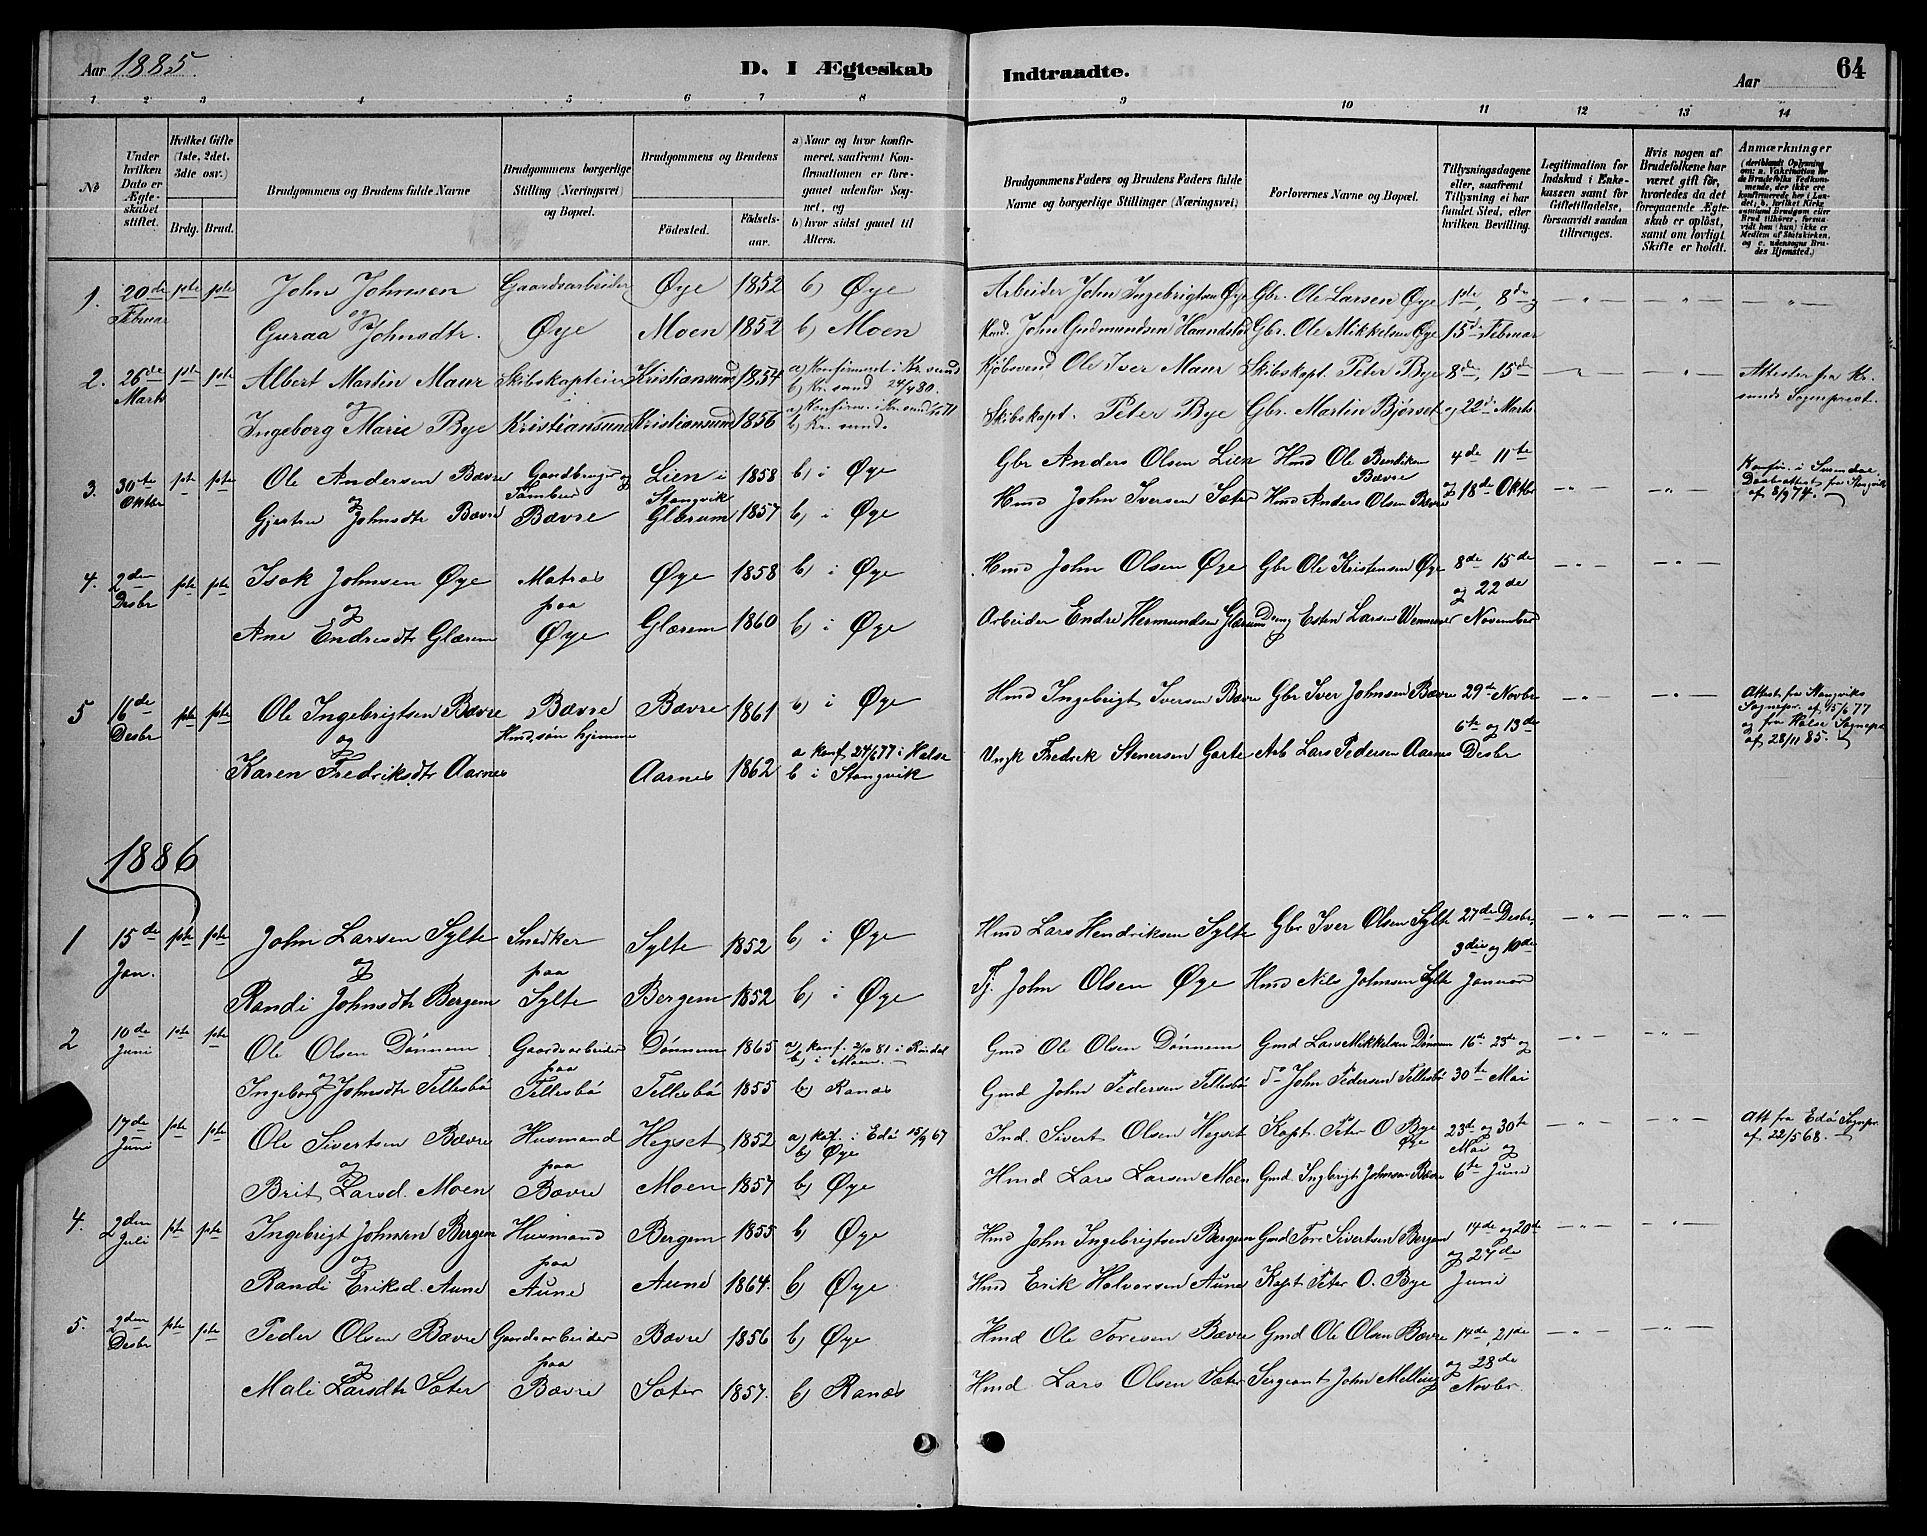 Aar 1885. D. I Ægteskab Indtraadte. Aar 64
1 2 3 4 5 6 7 8 9 10 11 12 13 14
No
Under hvilken Dato er Ægteskabet stiftet.
Hvilket Gifte (1ste, 2det, 3die osv.)
Brdg. Brud.
Brudgommens og Brudens fulde Navne
Brudgommens borgerlige Stilling (Næringsvei) og Bopæl.
Brudgommens og Brudens
Fødested. Fødselsaar.
a) Naar og hvor konfirmeret, saafremt Konfirmationen er foregaaet udenfor Sognet, og
b) hvor sidst gaaet til Alters.
Brudgommens Faders og Brudens Faders fulde Navne og borgerlige Stillinger (Næringsvei)
Forlovernes Navne og Bopæl.
Tillysningsdagene eller, saafremt Tillysning ei har fundet Sted, efter hvilken Bevilling.
Legitimation for Indskud i Enkekassen samt for Giftetilladelse, forsaavidt saadan tiltrænges.
Hvis nogen af Brudefolkene har været gift før, hvorledes da det foregaaende Ægteskab er opløst, samt om lovligt Skifte er holdt.
Anmærkninger
(deriblandt Oplysning om: a. Vakcination for de Brudefolks Vedkommende, der ikke ere konfirmerede her i Landet, b. hvilket Kirkesamfund Brudgom eller Brud tilhører, forsavidt han (hun) ikke er Medlem af Statskirken, og c. udensogns Brudes Hjemsted.)
1. 20de Februar 1ste 1ste John Johnsen Gaardsarbeider Øye 1852 b) Øye Arbeider John Ingebrigtsen Øye Gbr. Ole Larsen Øye 1ste, 8de og
og
Guraa Johnsdtr. Øye Moen 1852 b) Moen Hmd. John Gudmundsen Haandstad Gbr. Ole Mikkelsen Øye 15de Februar
2. 26de Marts 1ste 1ste Albert Martin Maur Skibskaptein Kristiansund 1854 a) Konfirmeret i Kr.sund b) Kr.sund 24/4 80. Kjøbmd Ole Iver Maur Skibskapt. Peter Bye 8de, 15de Attester fra Kr.sunds Sognepræst.
og
Ingeborg Marie Bye Kristiansund Kristiansund 1856 a) Konfirm. i Kr.sund 71 b) Kr.sund. Skibskapt. Peter Bye Gbr. Martin Bjørset og 22de Marts
3. 30te Oktbr 1ste 1ste Ole Andersen Bævre Gaardbruger og Lien i Stangvik 1858 b) i Øye Gbr Anders Olsen Lien Hmd Ole Bendiksen Bævre 4de 11te
og
Gjertru Johnsdtr Bævre Bævre Glærum 1857 b) i Øye Hmd John Iversen Sæter Hmd Anders Olsen Bævre og 18de Oktbr
Konfir. i Surendal. fra Stangvik af 8/9 74.
4. 2den Desbr 1ste 1ste Isak Johnsen Øye Matros Øye 1858 b) i Øye Hmd John Olsen Øye Gbr Ole Kristensen Øye 8de 15de
og paa og 22de
Ane Endresdtr Glærem Øye Glærem 1860 b) i Øye Arbeider Endre Hermundsen Glærum Dreng Esten Larsen November
5 16de Desbr 1ste 1ste Ole Ingebrigtsen Bævre Bævre Bævre 1861 b) i Øye Hmd Ingebrigt Iversen Bævre Gbr Iver Johnsen Bævre 29de Novbr
og Hmd.søn hjemme 6te og 13de
Karen Fredriksdtr Aarnes Aarnes 1862 a konf 24/6 77 i Halse b i Stangvik Ungk Fredrik Stenersen Garte Arb Lars Pedersen Aarnes Desbr
Attest fra Stangviks Sognepr. af 15/6 77 og fra Halse Sognepr. af 28/11 85.
1886
1 15de Jan. 1ste 1ste John Larsen Sylte Snedker Sylte 1852 b) i Øye Hmd Lars Hendriksen Sylte Gbr Iver Olsen Sylte 27de Desbr,
og paa 3die og 10de
Randi Johnsdtr Bergem Sylte Bergem 1852 b) i Øye Tj. John Olsen Øye Hmd Nils Johnsen Sylte Januar
2 10de Juni 1ste 1ste Ole Olsen Dønnem Gaardsarbeider Dønnem 1865 a) konf. 2/10 81 i Rindal b) i Moen. Gmd Ole Olsen Dønnem Gmd Lars Mikkelsen Dønnem 16de 23de og
og paa
Ingeborg Johnsdtr Tellesbø Tellesbø Tellesbø 1855 b) Ranæs Gmd John Pedersen Tellesbø do John Pedersen Tellesbø 30te Mai
17de Juni 1ste 1ste Ole Sivertsen Bævre Husmand Hegset 1852 a) kof. i Edø 15/9 67 b) Øye Ind. Sivert Olsen Hegset Kapt. Peter O Bye Øye 23de og 30te Mai og Att fra Edø Sognepr. af 22/5 68.
og paa
Brit Larsd. Moen Bævre Moen 1857 b) Øye Hmd Lars Larsen Moen Gmd. Ingebrigt Johnsen Bævre 6te Juni
4. 2den Juli 1ste 1ste Ingebrigt Johnsen Bergem Husmand Bergem 1855 b) Øye Hmd John Ingebrigtsen Bergem Gmd Tore Sivertsen Bergem 14de og 20de
og paa og 27de
Randi Eriksd. Aune Aune Aune 1864. b) Øye Hmd Erik Halvorsen Aune Kapt Peter O. Bye Juni
5. 2den Desbr 1ste 1ste Peder Olsen Bævre Gaardsarbeider Bævre 1856 b) Øye Hmd Ole Toresen Bævre Gmd Ole Olsen Bævre 14de, 21de
og paa og 28de
Mali Larsdtr Sæter Bævre Sæter 1857. b) Ranæs Hmd Lars Olsen Sæter Sergeant John Melling Novbr.